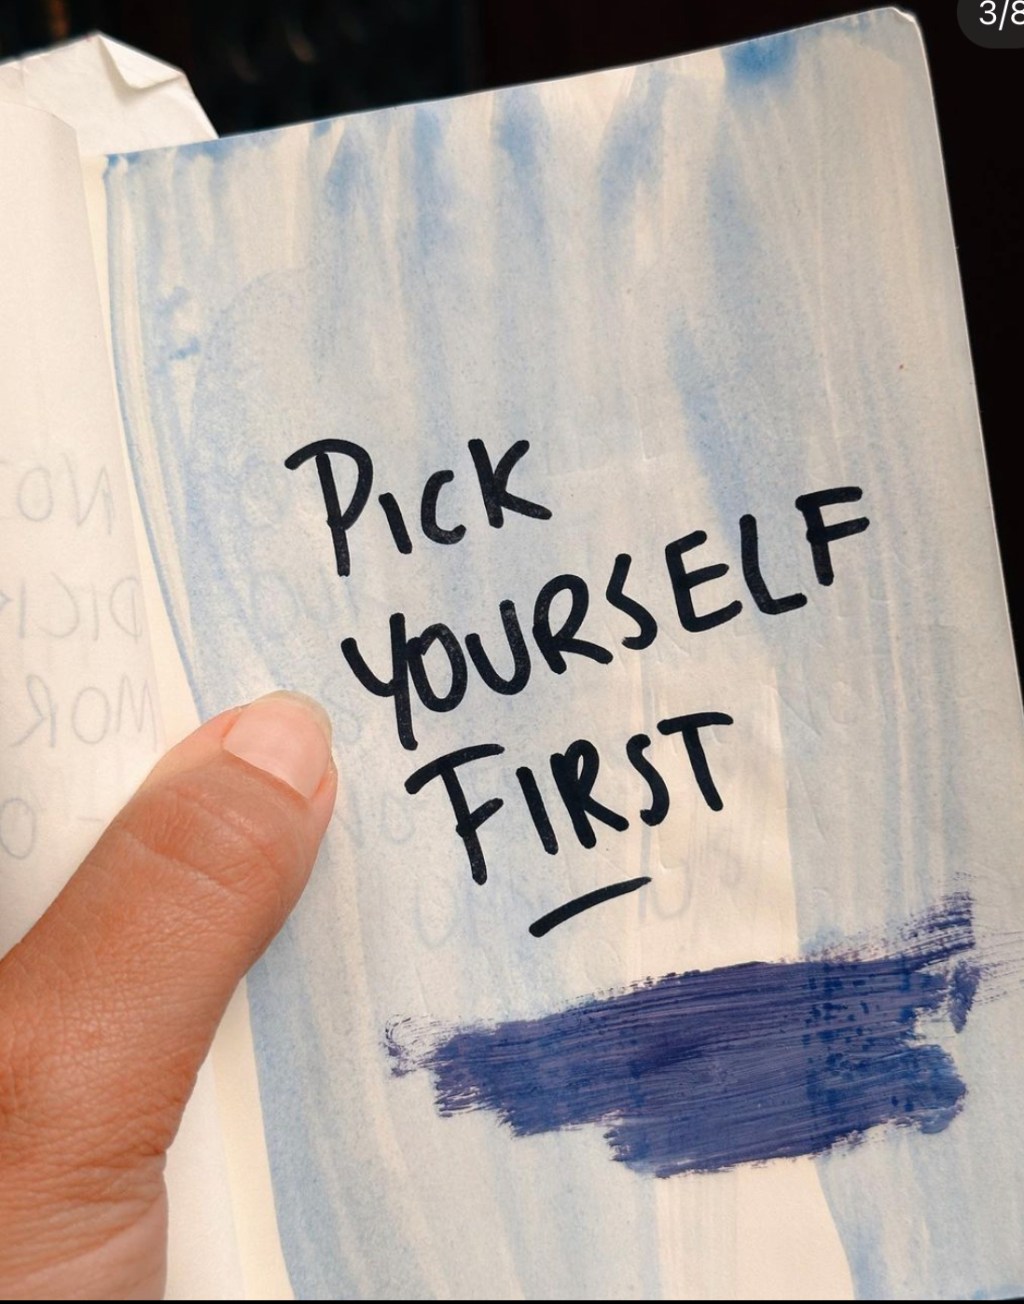 3/8
PICK
YOURSELF
FIRST